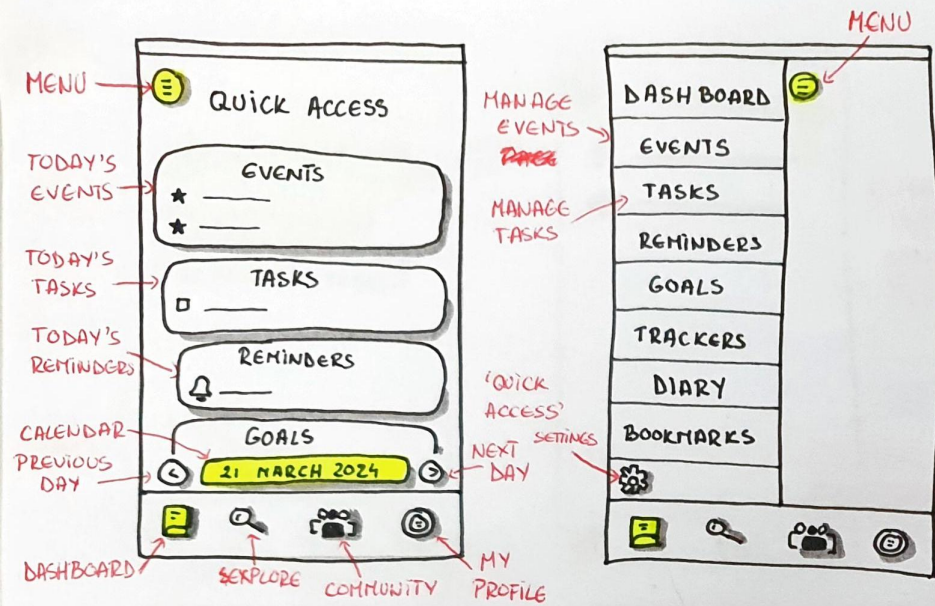 MENU
QUICK ACCESS
TODAY'S
EVENTS
EVENTS
TODAY'S
TASKS
TASKS
TODAY'S
REMINDERS
REMINDERS
GOALS
CALENDAR
PREVIOUS
DAY
21 MARCH 2024
NEXT
DAY
DASHBOARD
EXPLORE
COMMUNITY
MY
PROFILE
MENU
MANAGE
EVENTS
MANAGE
TASKS
'QUICK
ACCESS'
SETTINGS
DASHBOARD
EVENTS
TASKS
REMINDERS
GOALS
TRACKERS
DIARY
BOOKMARKS